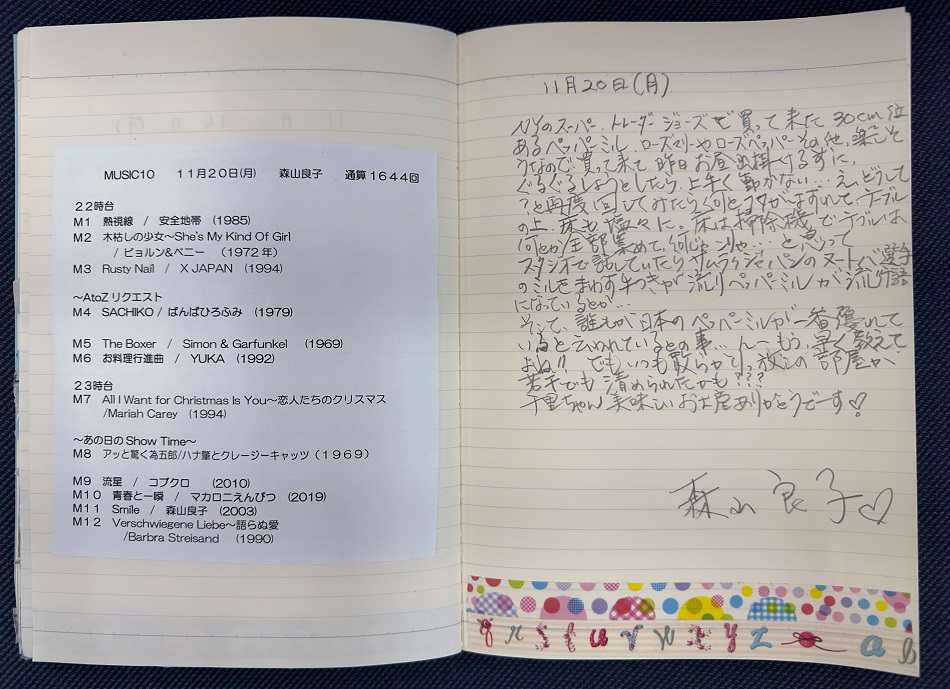 MUSIC10 11月20日(月) 森山良子 通算1644回
22時台
M1 熱視線 / 安全地帯 (1985)
M2 木枯しの少女～She's My Kind Of Girl
/ ビョルン&ベニー (1972年)
M3 Rusty Nail / X JAPAN (1994)
～AtoZリクエスト
M4 SACHIKO / ばんばひろふみ (1979)
M5 The Boxer / Simon & Garfunkel (1969)
M6 お料理行進曲 / YUKA (1992)
23時台
M7 All I Want for Christmas Is You～恋人たちのクリスマス
/Mariah Carey (1994)
～あの日のShow Time～
M8 アッと驚く為五郎/ハナ肇とクレージーキャッツ(1969)
M9 流星 / コブクロ (2010)
M10 青春と一瞬 / マカロニえんぴつ (2019)
M11 Smile / 森山良子 (2003)
M12 Verschwiegene Liebe～語らぬ愛
/Barbra Streisand (1990)
11月20日(月)
NYのスーパー、トレーダージョーズで買って来た30cm位
あるペッパーミル、ローズマリーやローズペッパーその他、楽しそ
うなので買って来て昨日お昼出掛けるまずに、
ぐるぐるしようとしたら、上手く動かない…え、どうして
?と再度回してみたら何とフタがはずれて、テーブル
の上、床も塩々に。床は掃除機で、テーブルは
何とか全部集めて、何じゃこりゃ…と思って
スタジオで話していたらサムライジャパンのヌートバー選手
のミルをまわす手つきが流行りペッパーミルが流行語
になっているとか…
そして、誰もが日本のペッパーミルが一番優れて
いると云われているとの事…んーもう、早く教えて
よね!! でもいつも散らかりっ放しの部屋が
若干でも清められたかも???
千里ちゃん美味しいお土産ありがとうでーす♡
森山良子♡
q r s t u v w x y z a b